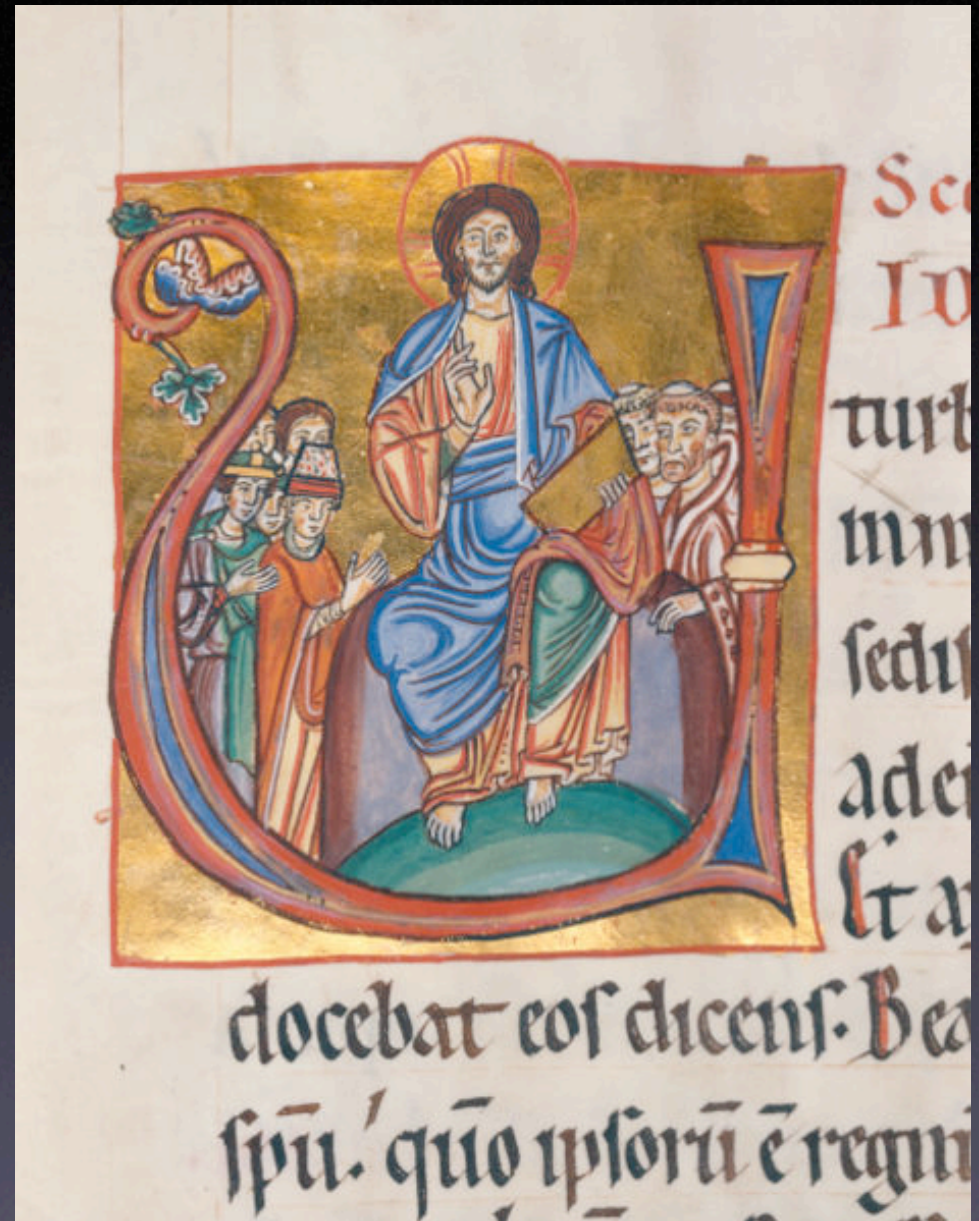 Sc
IO
turb
in m
sedis
ad e
Et a
docebat eos dicens. Bea
spū. quō ipsorū ē regn